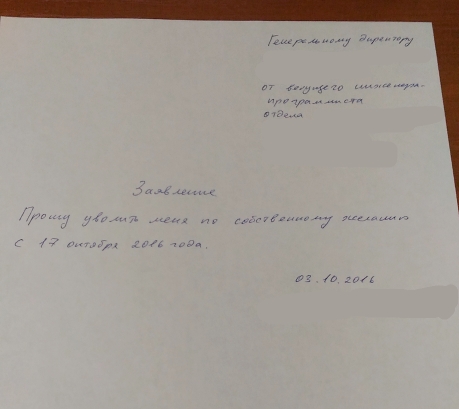 Генеральному директору
от ведущего инженера-
программиста
отдела
Заявление
Прошу уволить меня по собственному желанию
с 17 октября 2016 года.
03.10.2016